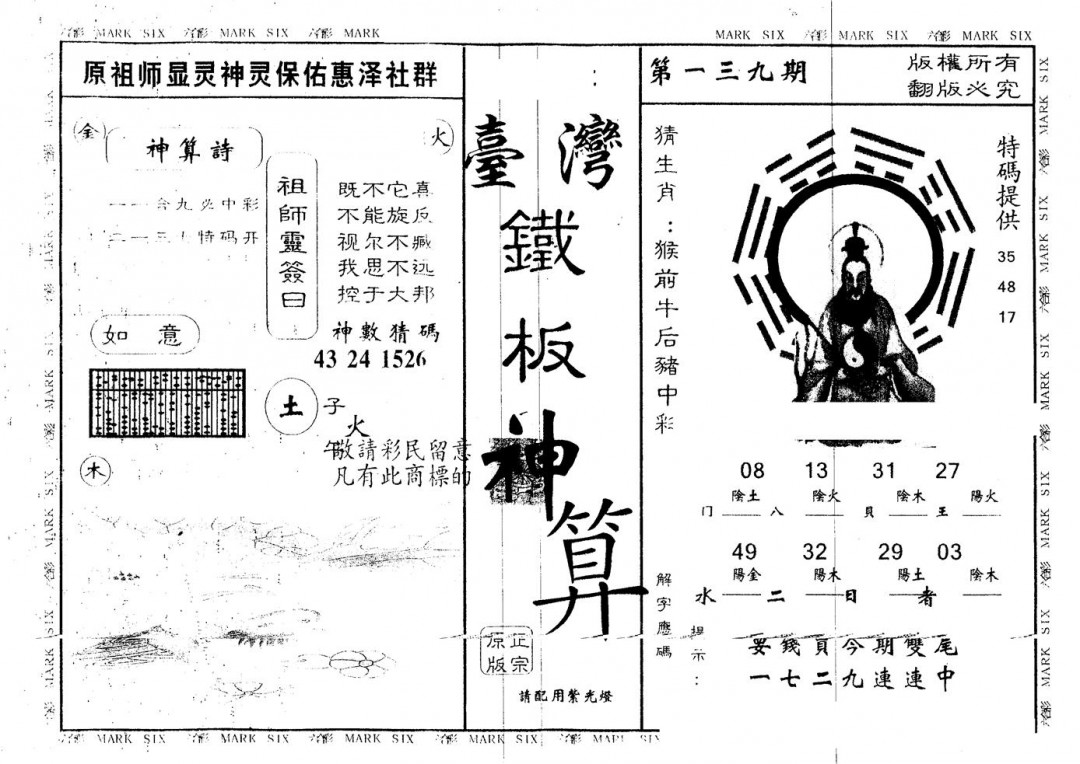 MARK SIX MARK SIX MARK
MARK SIX MARK SIX MARK SIX
原祖师显灵神灵保佑惠泽社群
金
火
神算詩
一一合九必中彩
特码开
祖師靈簽曰
既不它真
不能旋反
视尔不臧
我思不远
控于大邦
神數猜碼
43 24 1526
如意
土
子
火
木
敬請彩民留意
凡有此商標的
臺灣
鐵
板
神
算
正宗
原版
請配用紫光燈
第一三九期
版權所有
翻版必究
猜生肖：猴前牛后豬中彩
特碼提供
35
48
17
08 13 31 27
陰土 陰火 陰木 陽火
门 八 貝 王
49 32 29 03
陽金 陽木 陽土 陰木
水 二 日 者
解字應碼
提示：
要錢頁今期雙尾
一七二九連連中
MARK SIX MARK SIX MARK SIX MARK SIX